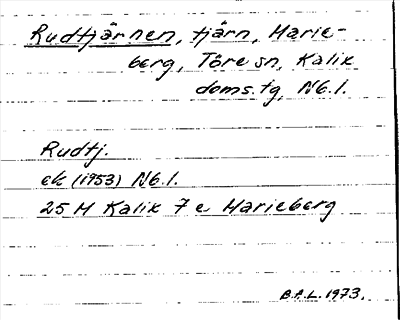 Rudtjärnen, tjärn, Marie-
berg, Töre sn, Kalix
doms.tg, Nb.l.
Rudtj.
ek (1953) Nb.l.
25 M Kalix 7 e Marieberg
B.P.L. 1973.